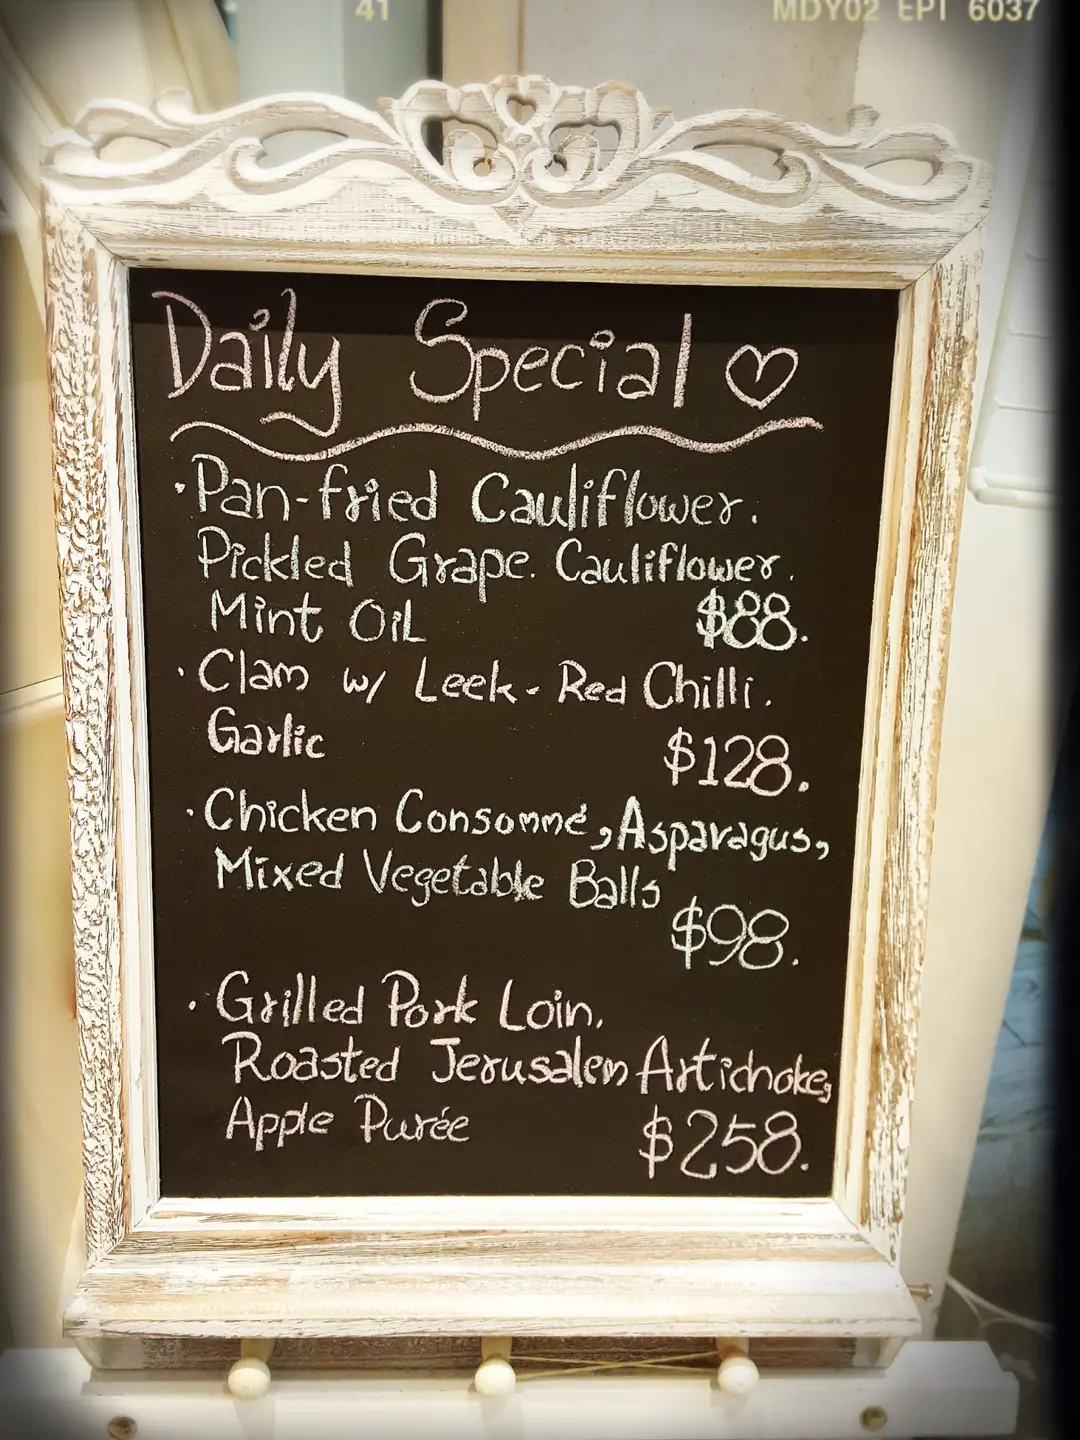 41 MDY02 EPI 6037
Daily Special ♡
· Pan-fried Cauliflower.
Pickled Grape. Cauliflower.
Mint Oil $88.
· Clam w/ Leek - Red Chilli.
Garlic $128.
· Chicken Consommé, Asparagus,
Mixed Vegetable Balls
$98.
· Grilled Pork Loin,
Roasted Jerusalem Artichoke,
Apple Purée $258.